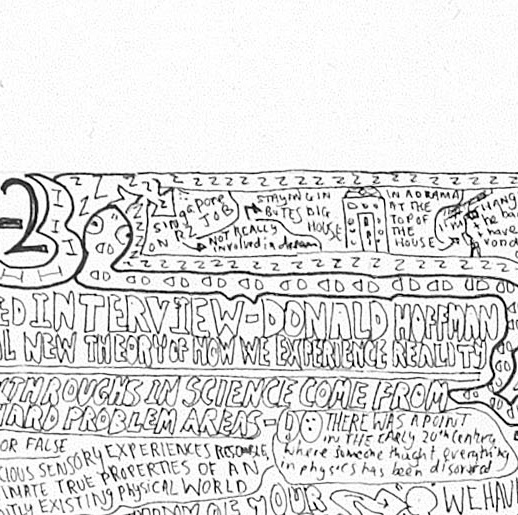 -2
SIN
ON
gapore
JOB
NOT REALLY
involved in dream
STAYING IN
BUTES DIG
HOUSE
IN A DRAMA
AT THE
TOP OF
THE
HOUSE
HANG
have
ED INTERVIEW-DONALD HOFFMAN
L NEW THEORY OF HOW WE EXPERIENCE REALITY
KTHROUGHS IN SCIENCE COME FROM
HARD PROBLEM AREAS-
THERE WAS A POINT
IN THE EARLY 20th Century
where someone thought everything
in physics has been
OR FALSE
CIOUS SENSORY EXPERIENCES RESEMBLE
INATE TRUE PROPERTIES OF AN
NTLY EXISTING PHYSICAL WORLD
YOUR
WE HAVE